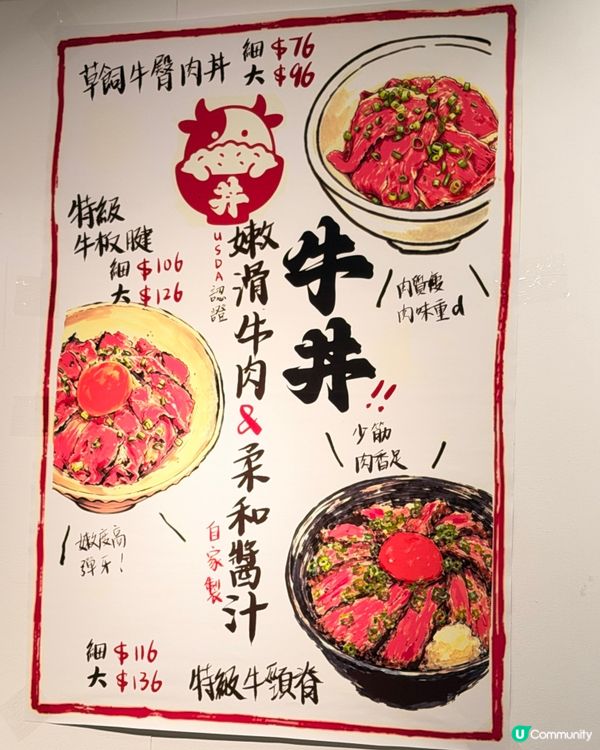 草飼牛臀肉丼
細 $76
大 $96
丼
特級
牛板腱
細 $106
大 $126
牛丼!!
USDA認證
嫩滑牛肉&柔和醬汁
自家製
肉質瘦
肉味重d
少筋
肉香足
嫩度高
彈牙!
細 $116
大 $136
特級牛頸脊
U Community